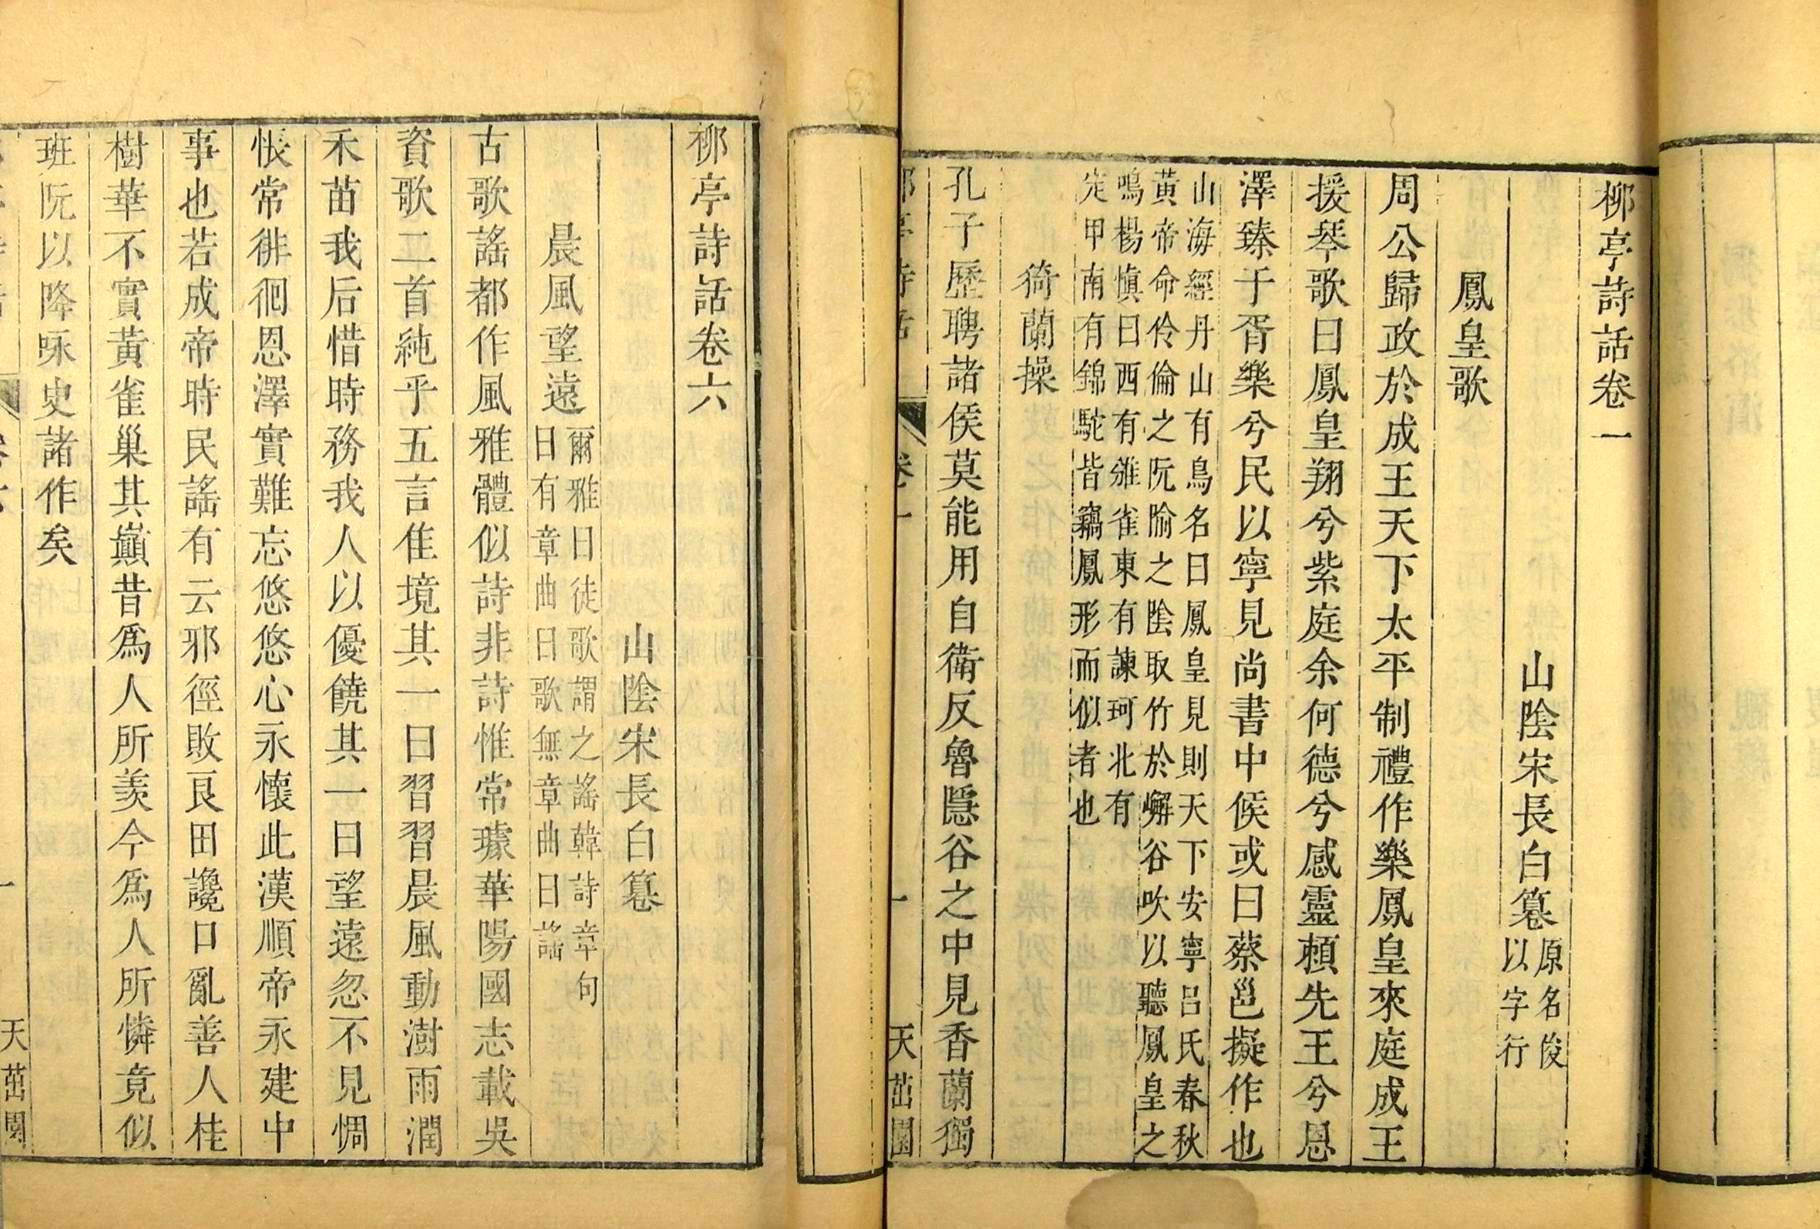 柳亭詩話卷一
山陰宋長白篹
原名俊
以字行
鳳皇歌
周公歸政於成王天下太平制禮作樂鳳皇來庭成王
援琴歌曰鳳皇翔兮紫庭余何德兮感靈頼先王兮恩
澤臻于胥樂兮民以寧見尚書中候或曰蔡邕擬作也
山海經丹山有鳥名曰鳳皇見則天下安寧呂氏春秋
黃帝命伶倫之阮隃之陰取竹於嶰谷吹以聽鳳皇之
鳴楊慎曰西有雒雀東有諫珂北有
定甲南有錦駝皆竊鳳形而似者也
猗蘭操
孔子歷聘諸侯莫能用自衛反魯隱谷之中見香蘭獨
卷一
一
天茁園
柳亭詩話卷六
山陰宋長白篹
晨風望遠
爾雅曰徒歌謂之謠韓詩章句
曰有章曲曰歌無章曲曰謠
古歌謠都作風雅體似詩非詩惟常璩華陽國志載吳
資歌二首純乎五言佳境其一曰習習晨風動澍雨潤
禾苗我后惜時務我人以優饒其一曰望遠忽不見惆
悵常徘徊恩澤實難忘悠悠心永懷此漢順帝永建中
事也若成帝時民謠有云邪徑敗良田讒口亂善人桂
樹華不實黃雀巢其巔昔爲人所羨今爲人所憐竟似
班阮以降咏史諸作矣
一
天茁園